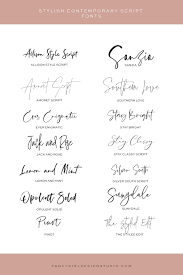 STYLISH CONTEMPORARY SCRIPT
FONTS
Allison Style Script
ALLISON STYLE SCRIPT
Sanzio
SANZIA
Amoret Script
AMORET SCRIPT
Southern Love
SOUTHERN LOVE
Ever Enigmatic
EVER ENIGMATIC
Stay Bright
STAY BRIGHT
Jack and Rose
JACK AND ROSE
Stay Classy
STAY CLASSY SCRIPT
Lemon and Mint
LEMON AND MINT
Silver South
SILVER SOUTH SCRIPT
Opulent Solid
OPULENT SOLID
Sunnydale
SUNNYDALE
Pinot
PINOT
The Styled Edit
THE STYLED EDIT